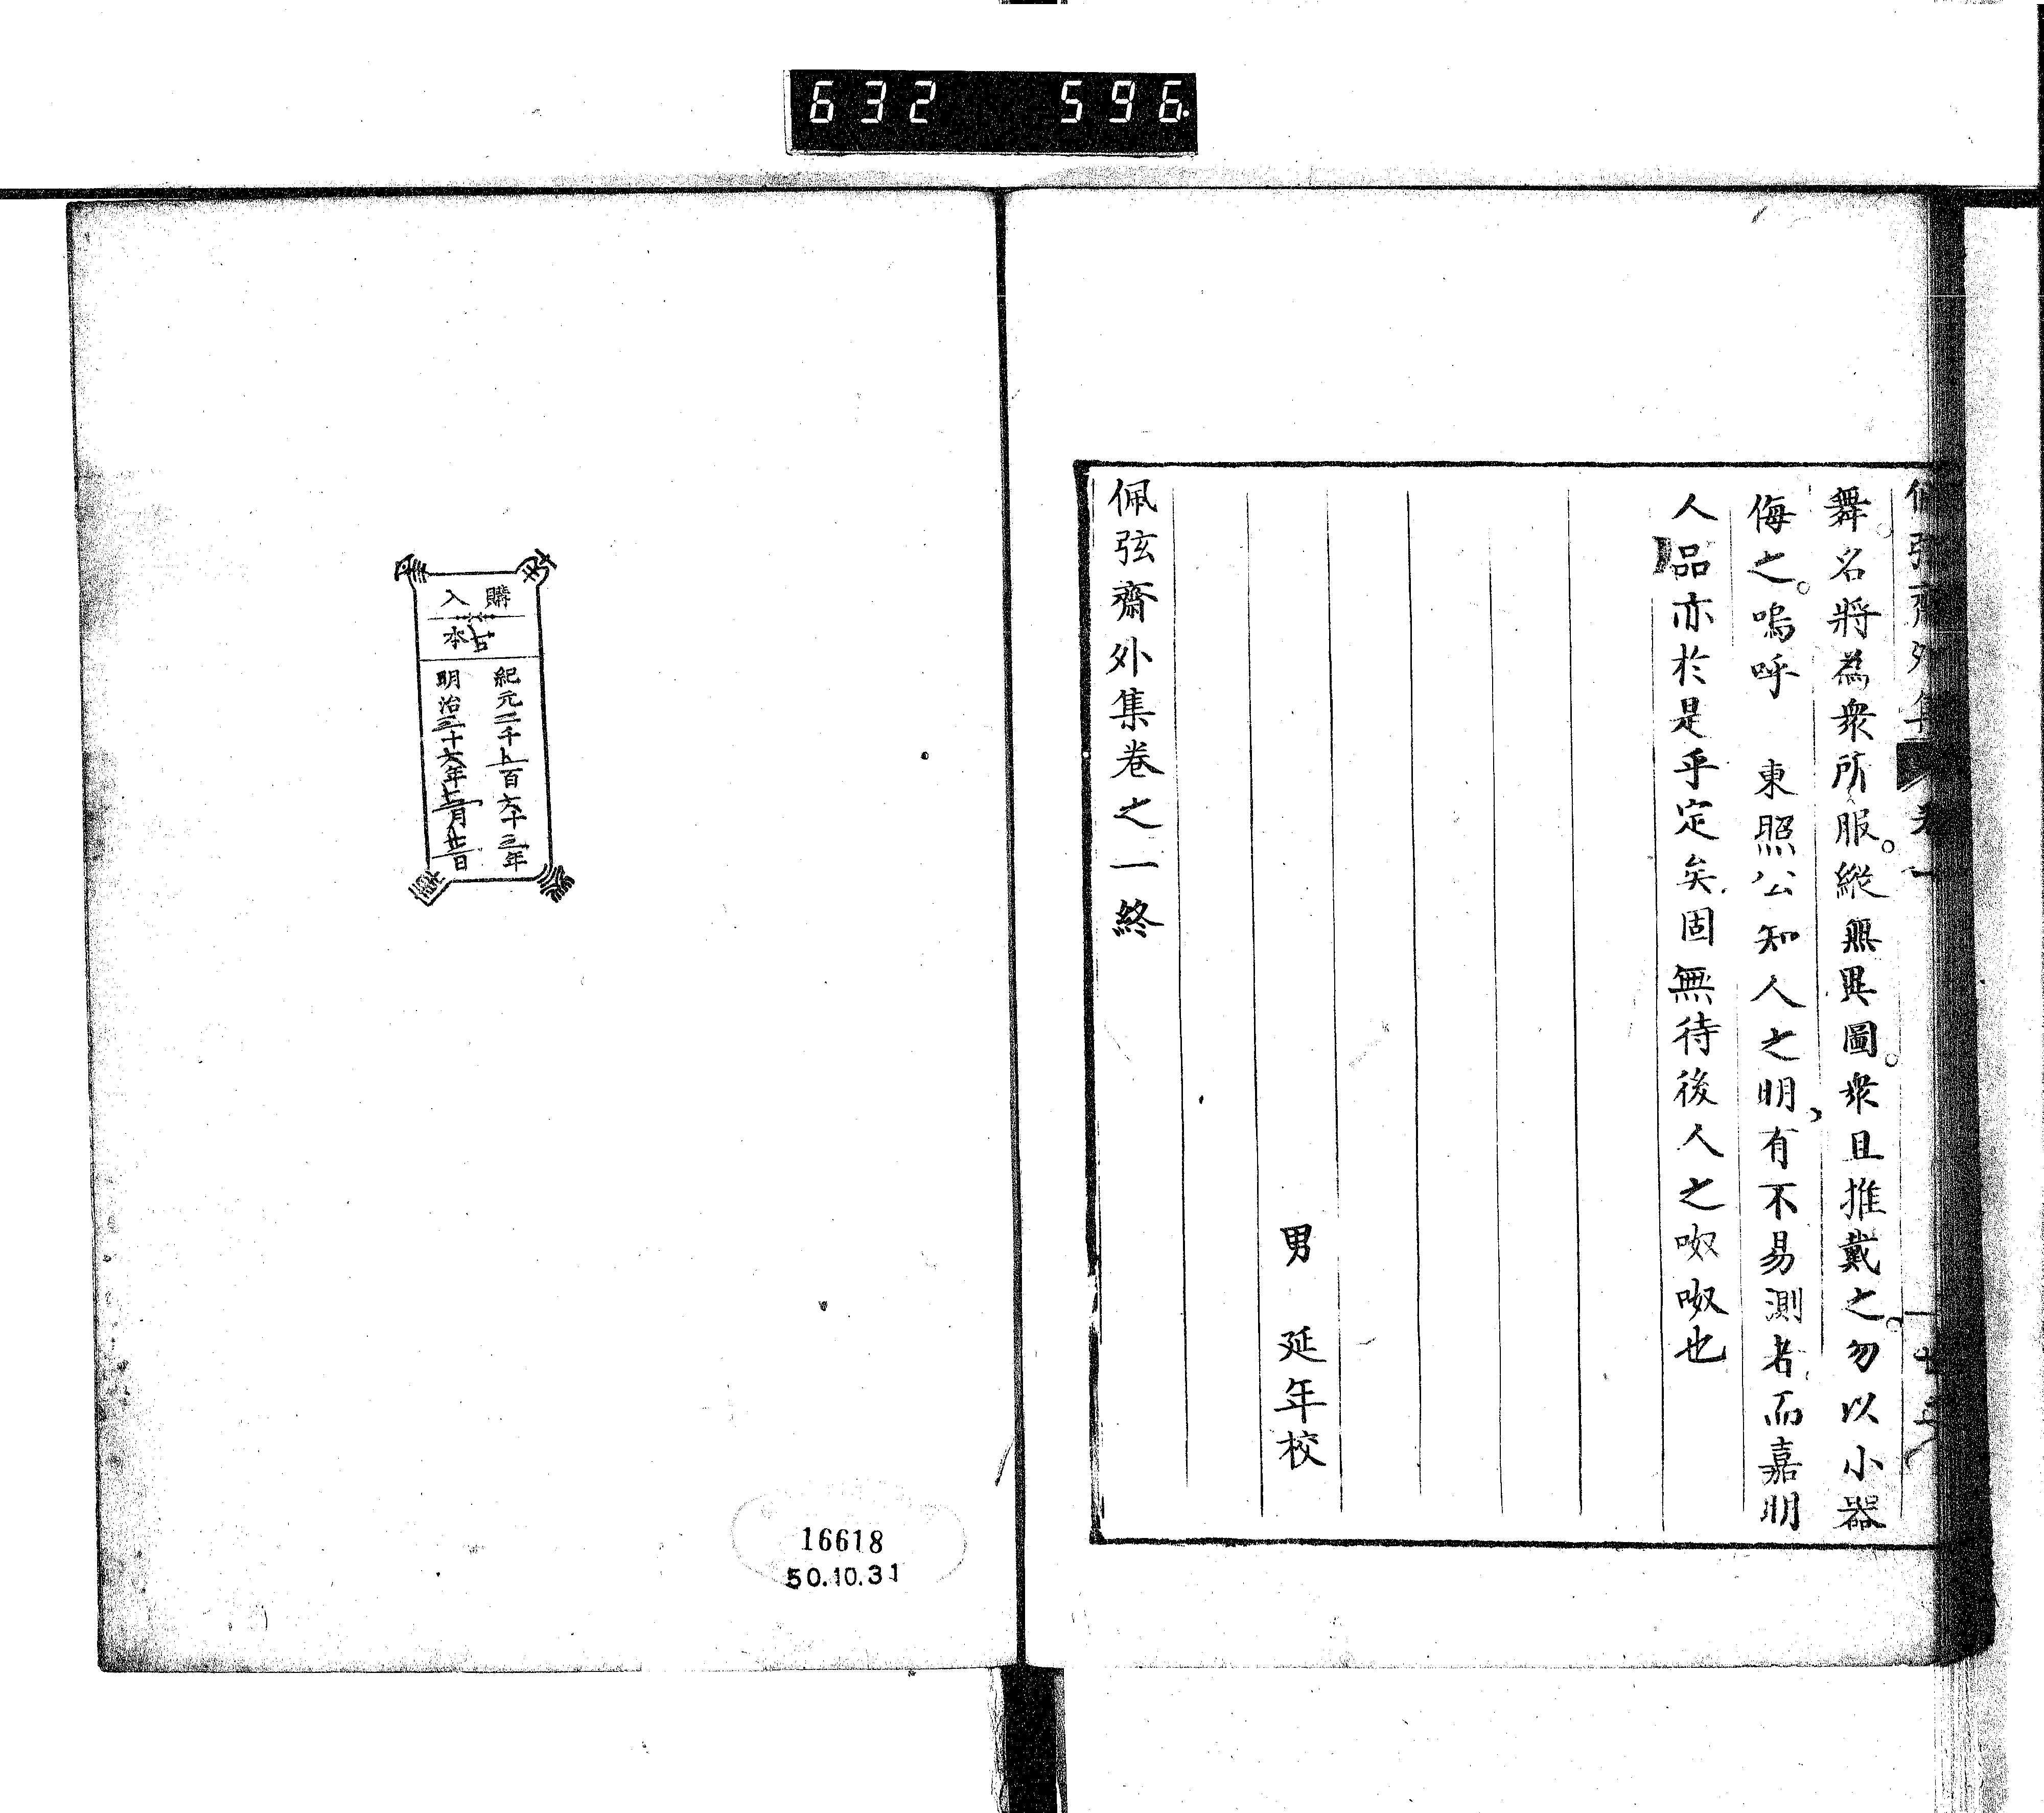 632 596
佩弦齋外集 卷一
舞名將為衆所服縱無異圖衆且推戴之勿以小器
侮之嗚呼 東照公知人之明有不易測者而嘉明
人品亦於是乎定矣固無待後人之呶呶也
男 延年校
佩弦齋外集卷之一終
購入
古本
紀元二千五百六十三年
明治三十六年
16618
50.10.31